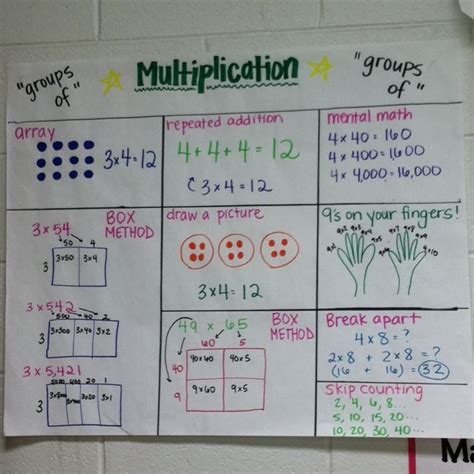 "groups of"
Multiplication
"groups of"
array
3×4=12
repeated addition
4+4+4=12
3×4=12
mental math
4×40=160
4×400=1600
4×4,000=16,000
3×54
BOX METHOD
50 4
3
3×50 3×4
3×542
500 40 2
3
3×500 3×40 3×2
3×5,421
400 20 1
3
3×20 3×1
draw a picture
3×4=12
9's on your fingers!
9×2 9×3 9×4
9×7 9×8 9×9
9×10
49 × 65
BOX METHOD
60 5
40
40×60 40×5
9
9×60 9×5
Break apart
4×8=?
2×8 + 2×8=?
(16 + 16)=32
Skip counting
2, 4, 6, 8...
5, 10, 15, 20...
10, 20, 30, 40...
Ma